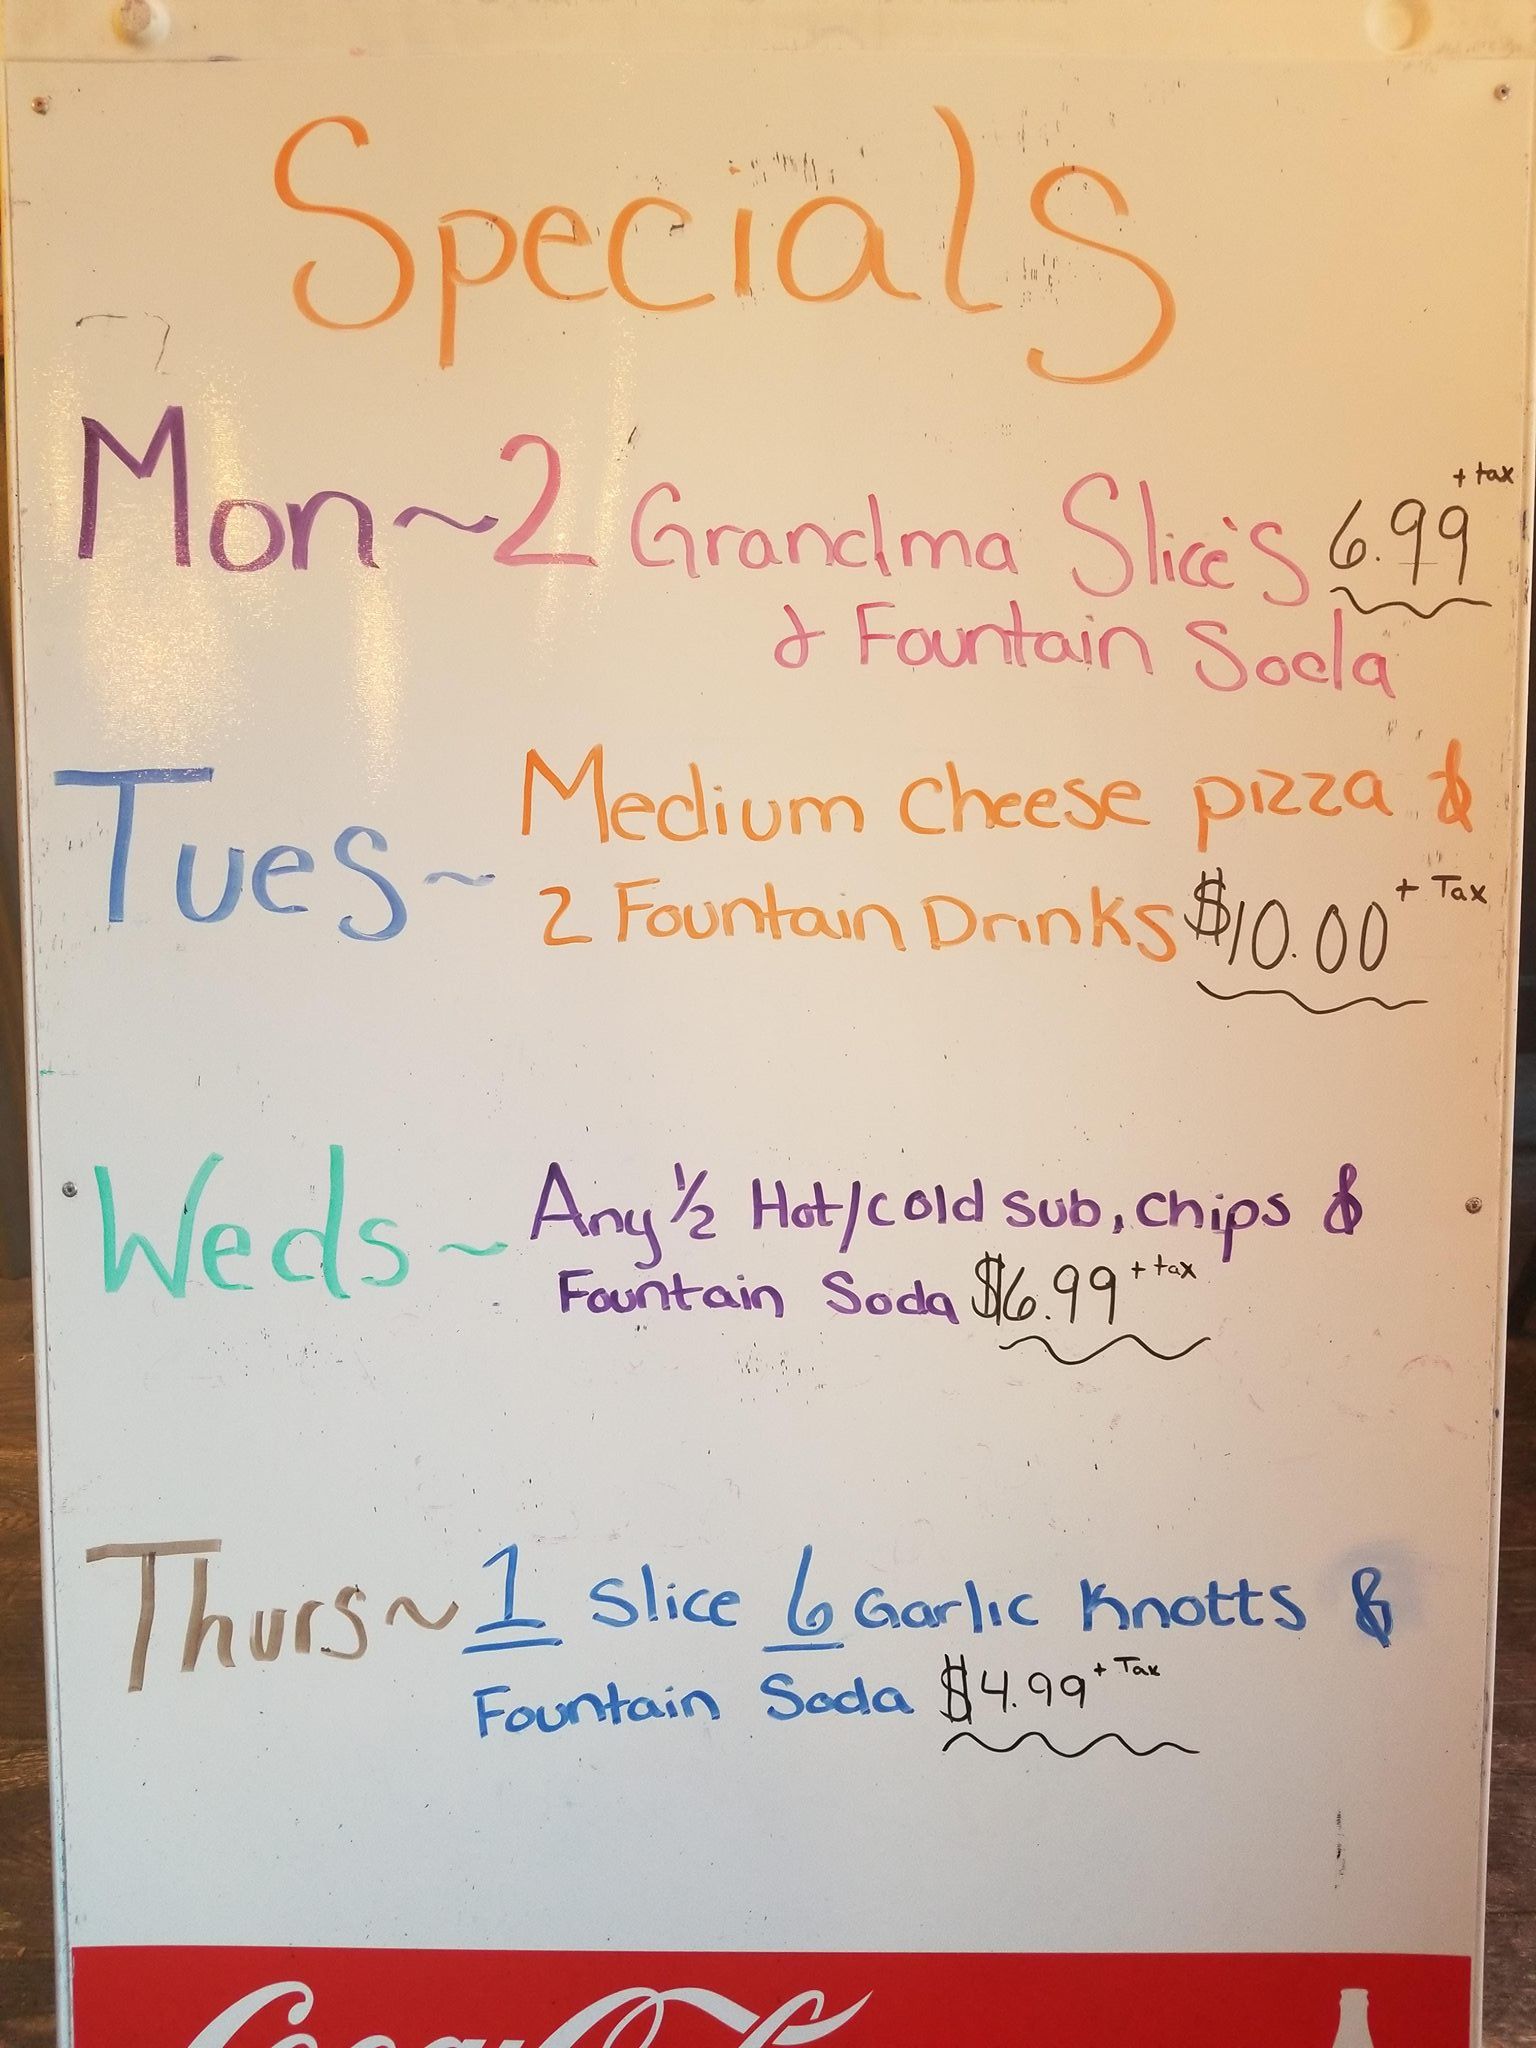 Specials
Mon ~ 2 Grandma Slice's 6.99 + tax
& Fountain Soda
Tues ~ Medium Cheese pizza &
2 Fountain Drinks $10.00 + Tax
Weds ~ Any 1/2 Hot/cold sub, chips &
Fountain Soda $6.99 + tax
Thurs ~ 1 Slice 6 Garlic Knotts &
Fountain Soda $4.99 + Tax
Coca-Cola